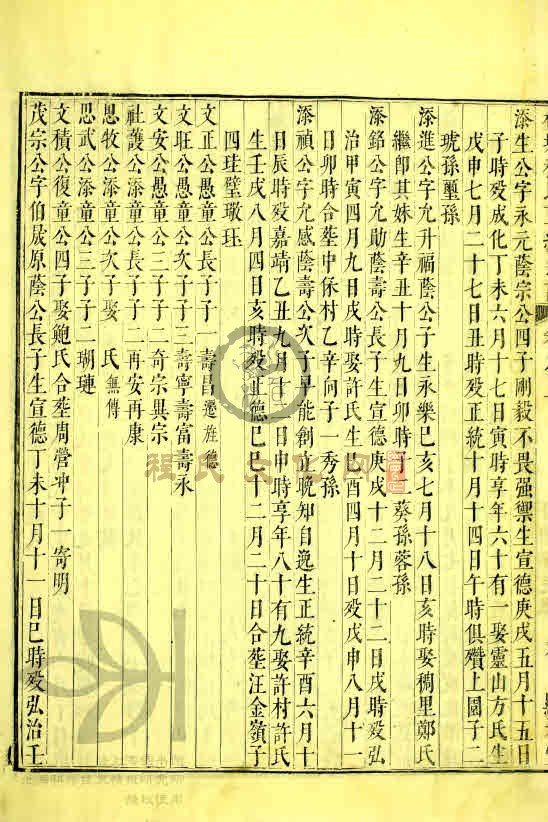 添生公字永元蔭宗公四子剛毅不畏强禦生宣德庚戌五月十五日
子時殁成化丁未六月十七日寅時享年六十有一娶靈山方氏生
戊申七月二十七日丑時殁正統十月十四日午時俱殯上園子二
琥孫璽孫
添進公字允升福蔭公子生永樂己亥七月十八日亥時娶稠里鄭氏
繼郎其妹生辛丑十月九日卯時子二葵孫蓉孫
添銘公字允勛蔭壽公長子生宣德庚戌十二月二十二日戌時殁弘
治甲寅四月九日戌時娶許氏生乙酉四月十日殁戊申八月十一
日卯時合塟中保村乙辛向子一秀孫
添禎公字允感蔭壽公次子早能創立晚知自逸生正統辛酉六月十
日辰時殁嘉靖乙丑九月十二日申時享年八十有九娶許村許氏
生壬戌八月四日亥時殁正德己巳十二月二十日合塟汪金嶺子
四珪璧璥珏
文正公愚童公長子子一壽昌遷旌德
文旺公愚童公次子子三壽寧壽富壽永
文安公愚童公三子子二奇宗異宗
社護公添童公長子子二再安再康
思牧公添童公次子娶 氏無傳
思武公添童公三子子二瑚璉
文積公復童公四子娶鮑氏合塟周營冲子一寄明
茂宗公字伯晟原蔭公長子生宣德丁未十月十一日巳時殁弘治壬
程氏文化